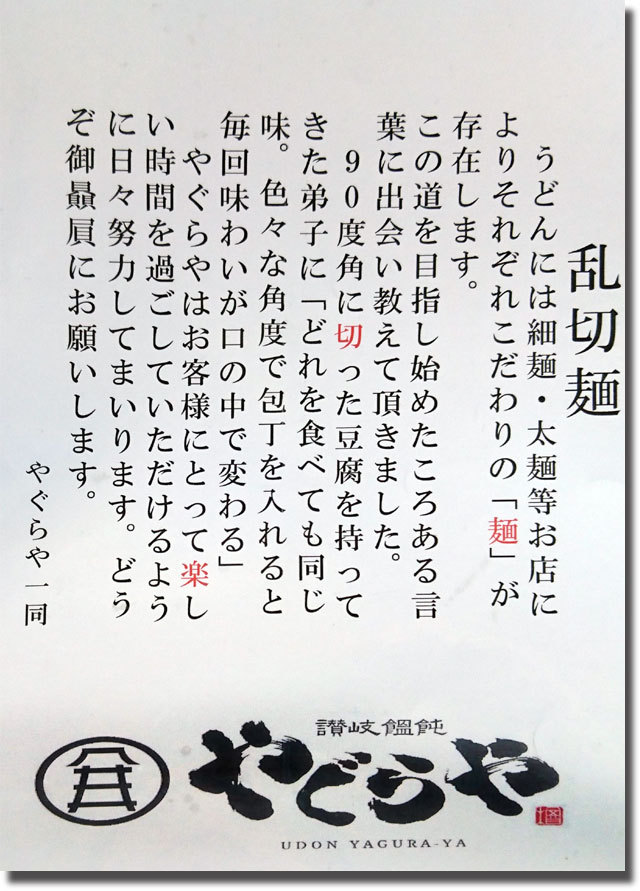 乱切麺
うどんには細麺・太麺等お店に
よりそれぞれこだわりの「麺」が
存在します。
この道を目指し始めたころある言
葉に出会い教えて頂きました。
９０度角に切った豆腐を持って
きた弟子に「どれを食べても同じ
味。色々な角度で包丁を入れると
毎回味わいが口の中で変わる」
やぐらやはお客様にとって楽し
い時間を過ごしていただけるよう
に日々努力してまいります。どう
ぞ御贔屓にお願いします。
やぐらや一同
讃岐饂飩
やぐらや
UDON YAGURA-YA